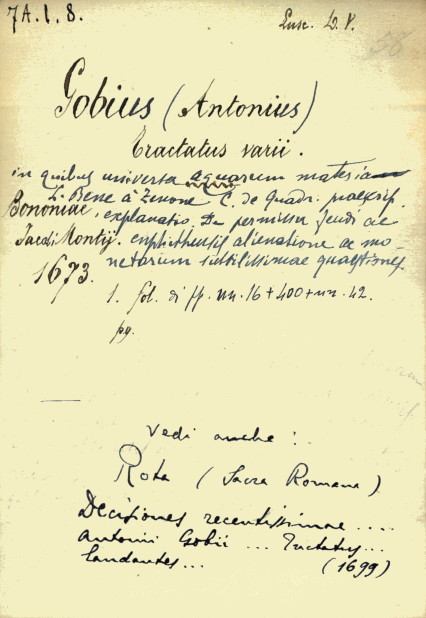 7A.1.8.
Ense. D.V.
58
Gobius (Antonius)
Tractatus varii.
in quibus universa aquarum materia
L. Bene à Zenone C. de Quadr. praescrip.
Bononiae, explanatio. De permissa feudi ac
Jacobi Montij. emphitheusis alienatione ac mo-
1673. netarum subtilissimae quaestiones
1. fol. di ff. nn. 16 + 400 + nn. 42.
pg.
Vedi anche:
Rota (Sacra Romana)
Decisiones recentissimae ....
Antonii Gobii ... Tractatus...
laudantes ... (1699)